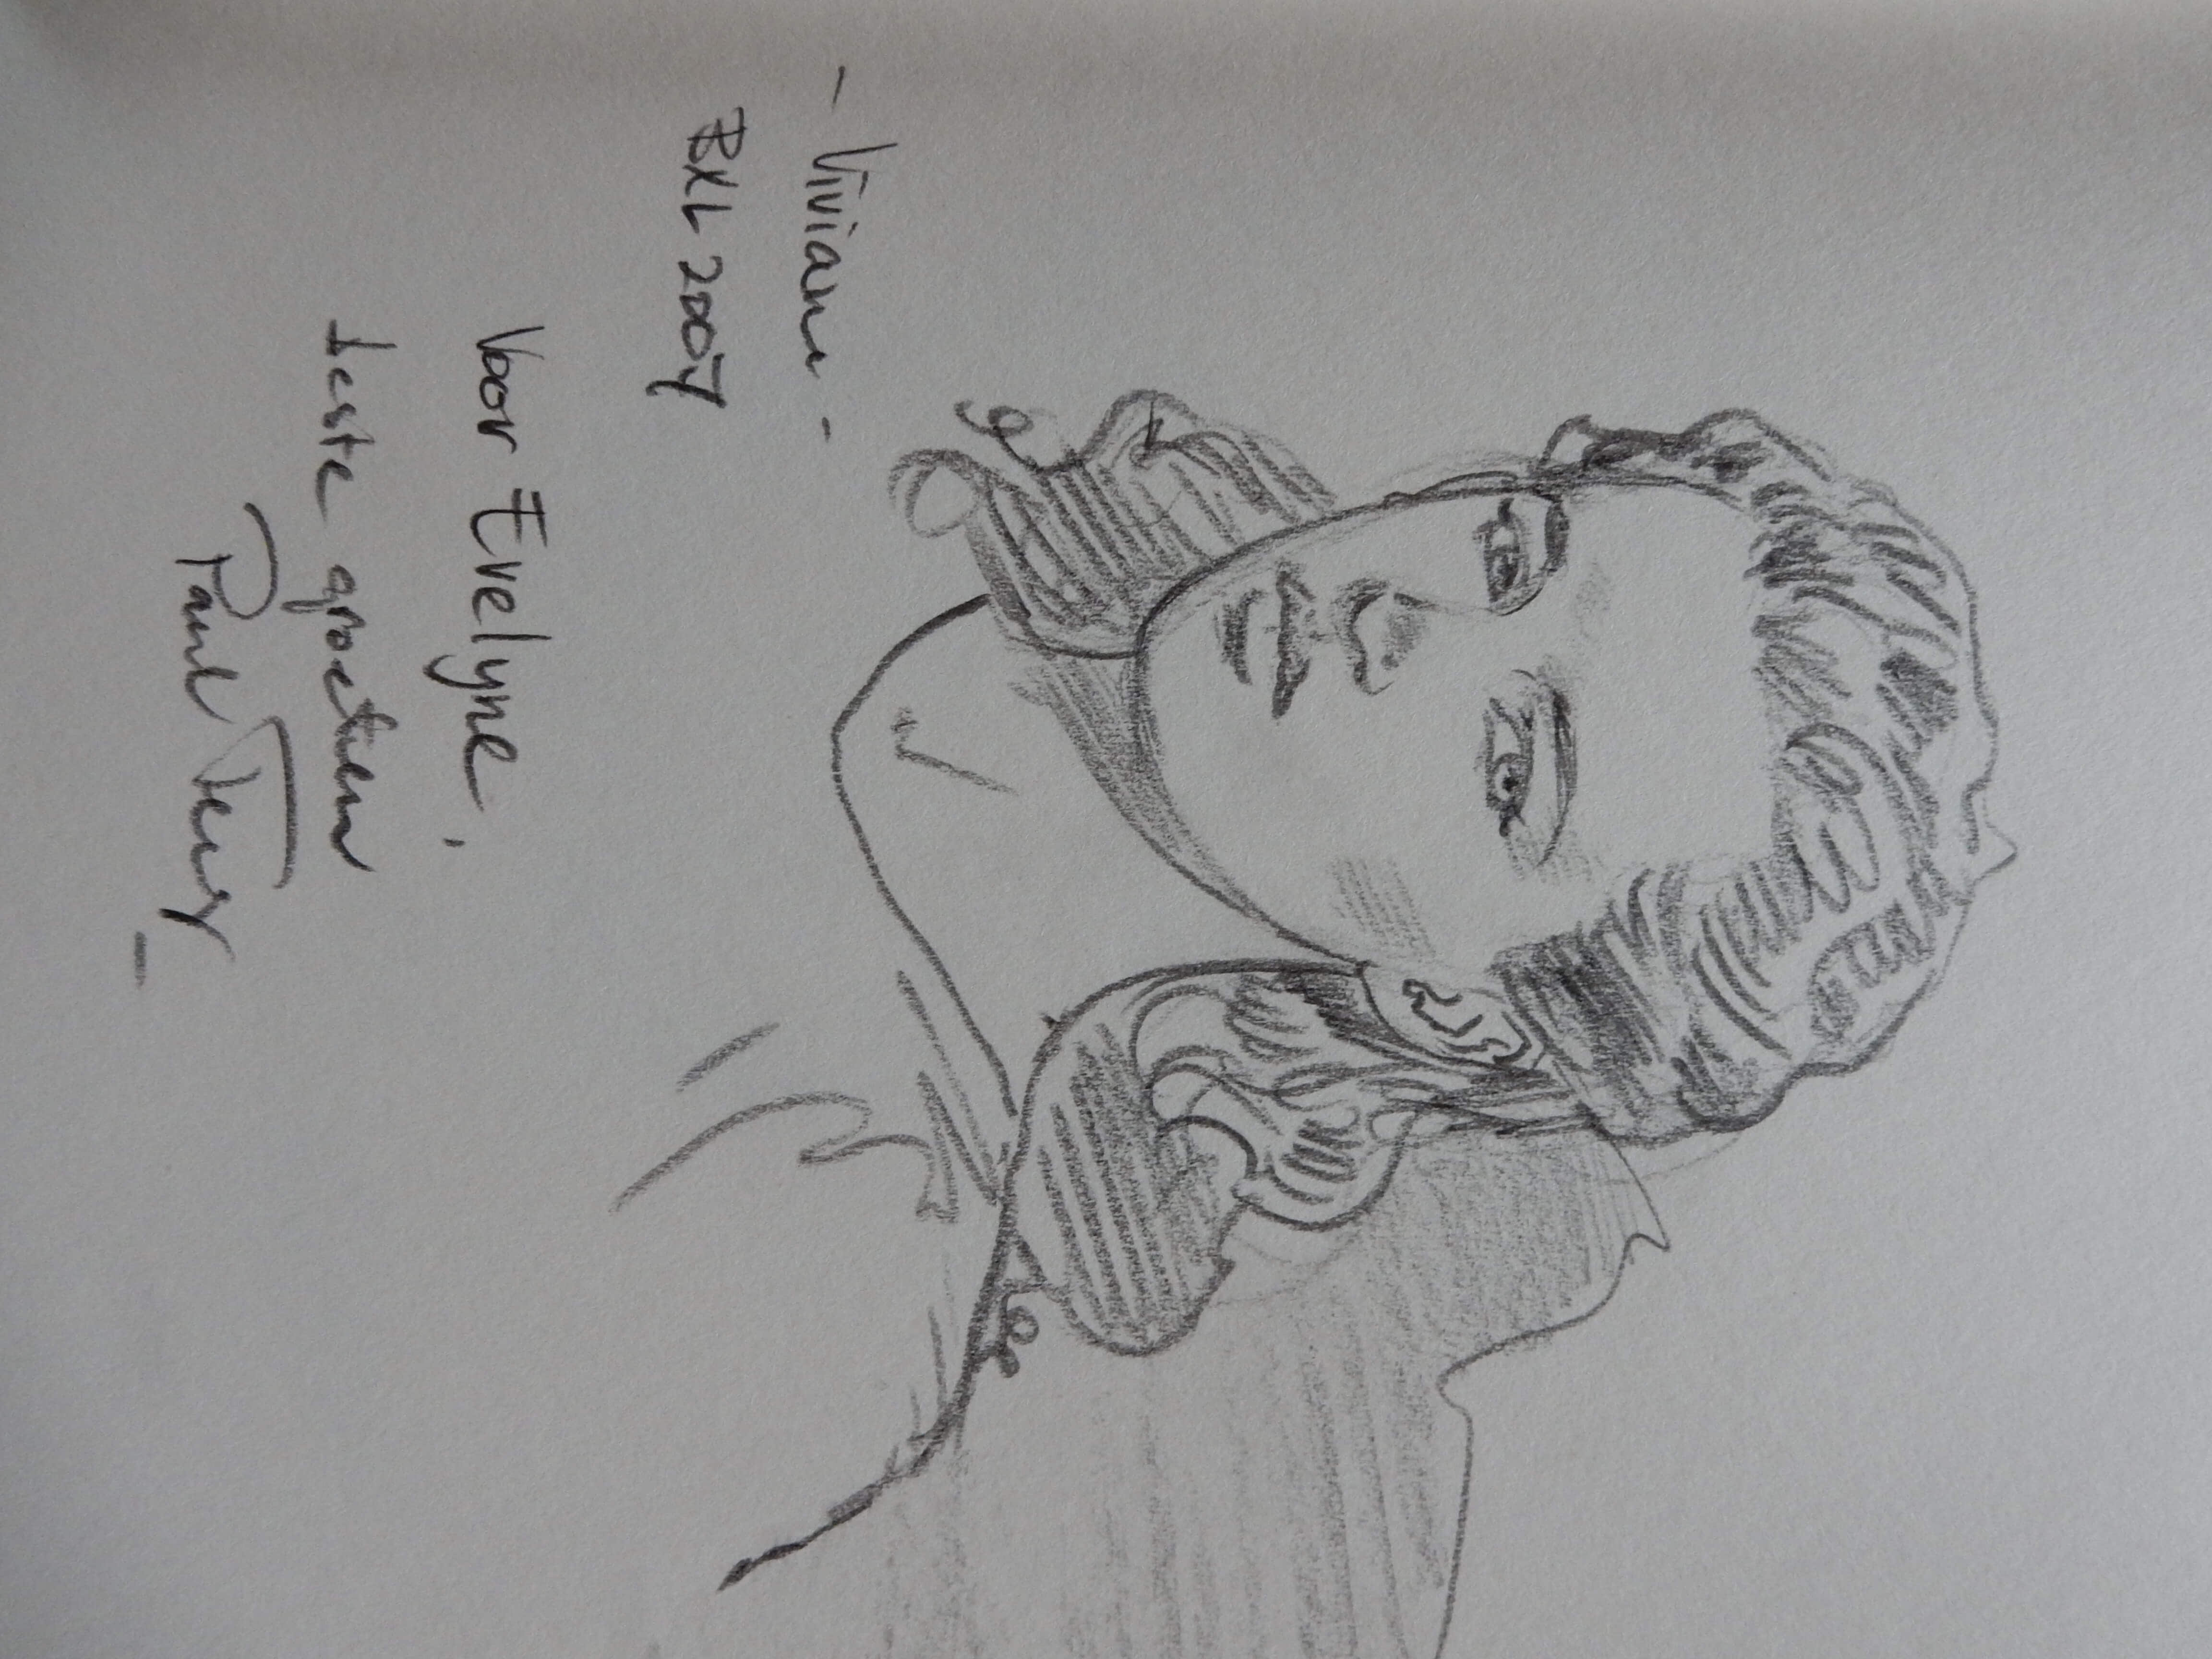 - Viviane -
BXL 2007
Voor Evelyne,
beste groeten
Paul Teng